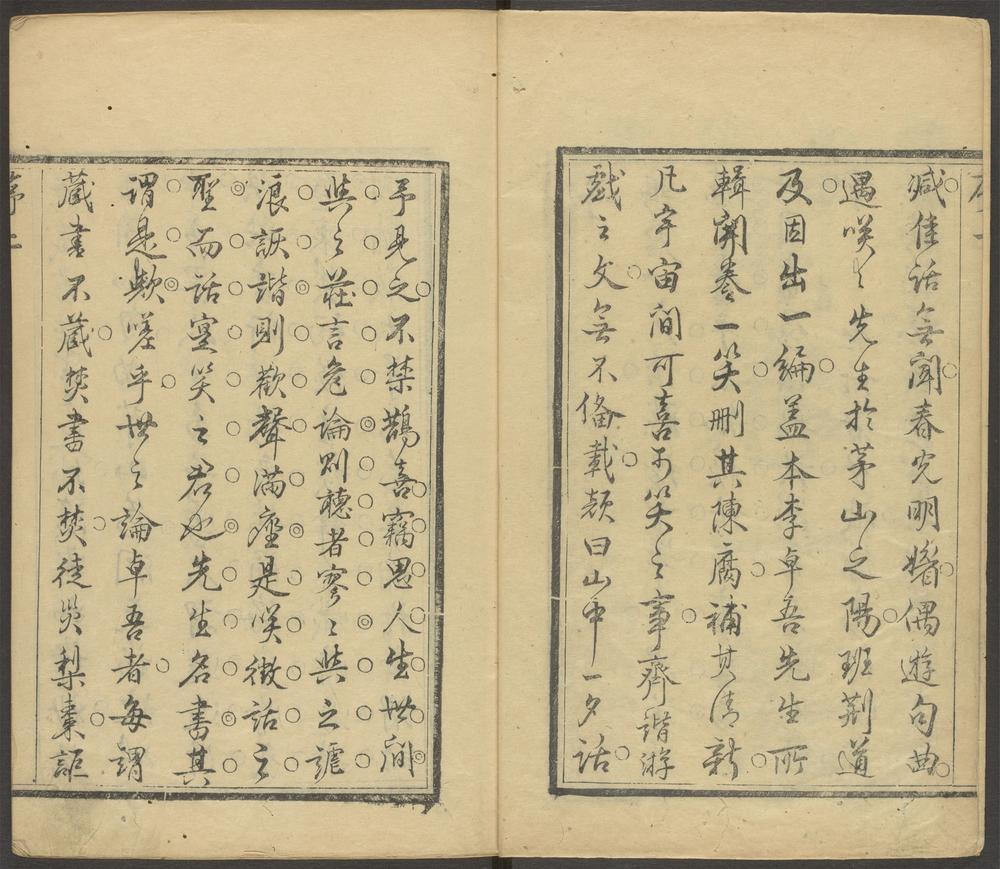 序一
緘佳話無聞春光明媚偶遊句曲
遇咲〻先生於茅山之陽班荆道
及因出一編盖本李卓吾先生所
輯開卷一笑刪其陳腐補其清新
凡宇宙間可喜可笑之事齊諧游
戲之文無不俻載顔曰山中一夕話
予見之不禁鵲喜竊思人生世間
與之莊言危論則聽者寥〻與之謔
浪詼諧則歡聲滿座是咲徵話之
聖而話寔笑之君也先生名書其
謂是歟嗟乎世之論卓吾者每謂
蔵書不蔵焚書不焚徒災梨棗詎
序二